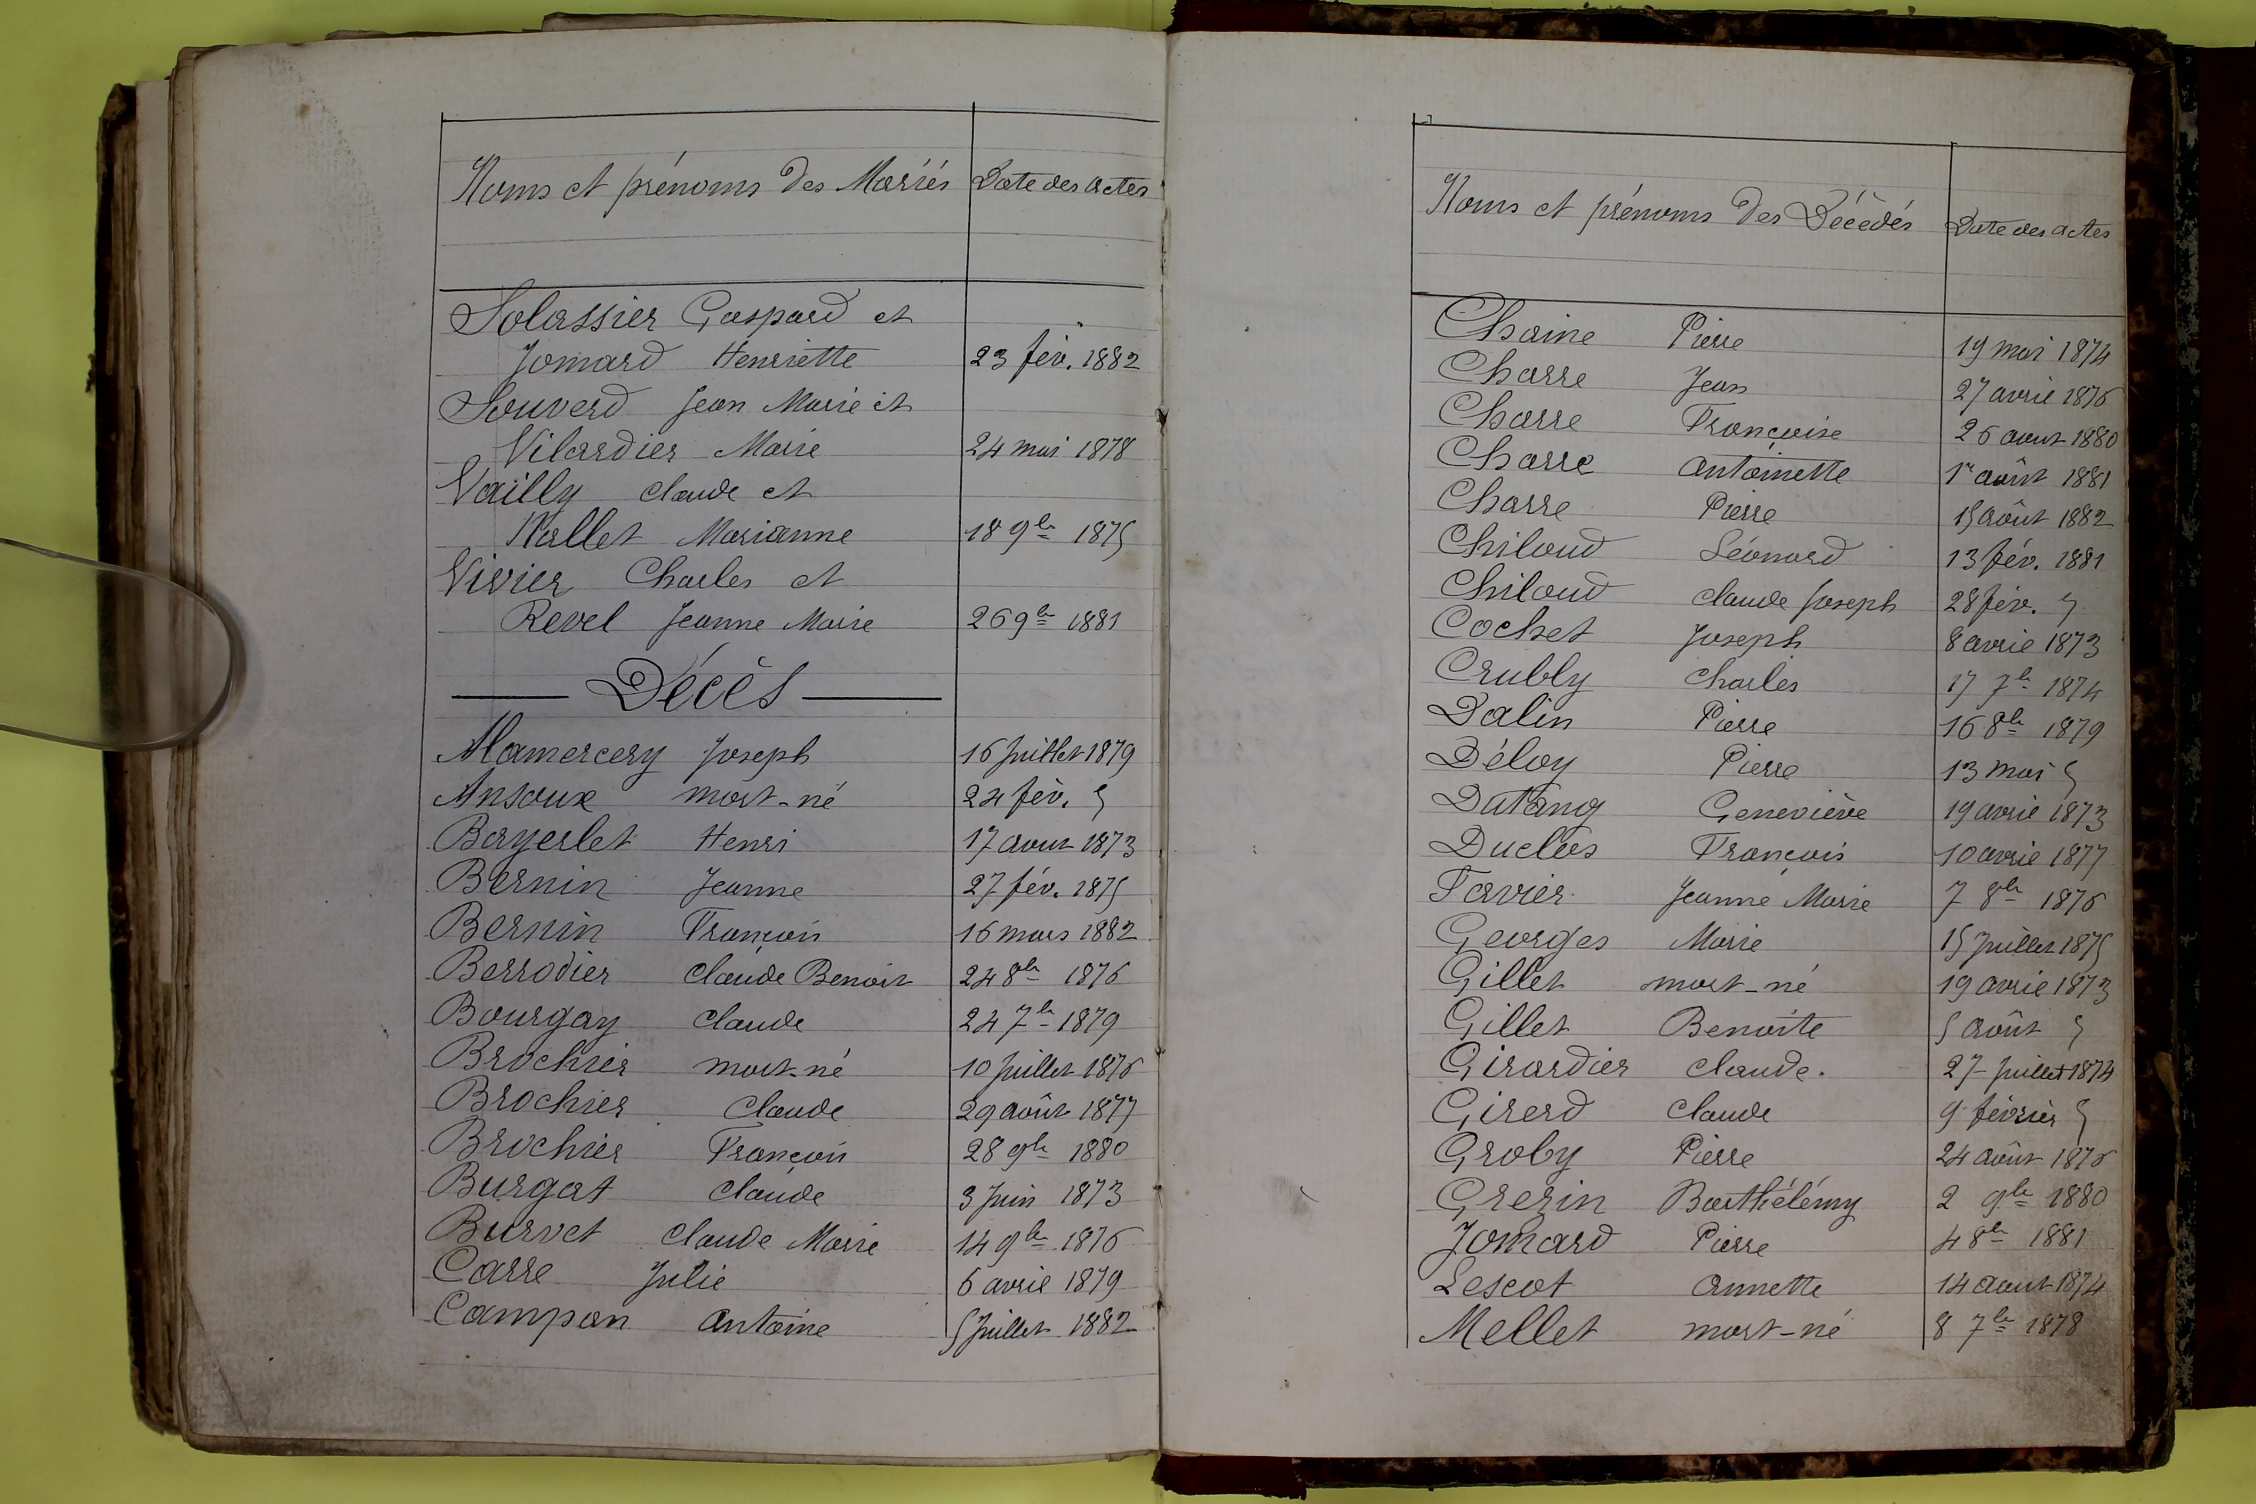 Noms et prénoms des Mariés Date des actes
Solassier Gaspard et
Jomard Henriette 23 fév. 1882
Souverd Jean Marie et
Vilardier Marie 24 mai 1878
Vailly Claude et
Nallet Marianne 18 9bre 1875
Vivier Charles et
Revel Jeanne Marie 26 9bre 1881
Décès
Alamercery Joseph 16 Juillet 1879
Ansoux mort-né 24 fév. "
Bayerlet Henri 17 aout 1873
Bernin Jeanne 27 fév. 1875
Bernin François 16 mars 1882
Berrodier Claude Benoit 24 8bre 1876
Bourgay Claude 24 7bre 1879
Brochier mort-né 10 Juillet 1876
Brochier Claude 29 août 1877
Brochier François 28 9bre 1880
Burgat Claude 3 Juin 1873
Burvet Claude Marie 14 9bre 1876
Carre Julie 6 avril 1879
Campan Antoine 5 Juillet 1882
Noms et prénoms des Décédés Date des actes
Chaine Pierre 19 mai 1874
Charre Jean 27 avril 1876
Charre Françoise 26 aout 1880
Charre Antoinette 1r août 1881
Charre Pierre 15 août 1882
Chiloud Léonard 13 fév. 1881
Chiloud Claude Joseph 28 fév. "
Cochet Joseph 8 avril 1873
Crubly Charles 17 7bre 1874
Dalin Pierre 16 8bre 1879
Déloy Pierre 13 mai "
Datang Geneviève 19 avril 1873
Duclos François 10 avril 1877
Favier Jeanne Marie 7 8bre 1876
Georges Marie 15 Juillet 1875
Gillet mort-né 19 avril 1873
Gillet Benoite 5 août "
Girardier Claude. 27 Juillet 1874
Girerd Claude 9 février "
Groby Pierre 24 août 1876
Grerin Barthélémy 2 9bre 1880
Jomard Pierre 4 8bre 1881
Lescot Annette 14 aout 1874
Mellet mort-né 8 7bre 1878